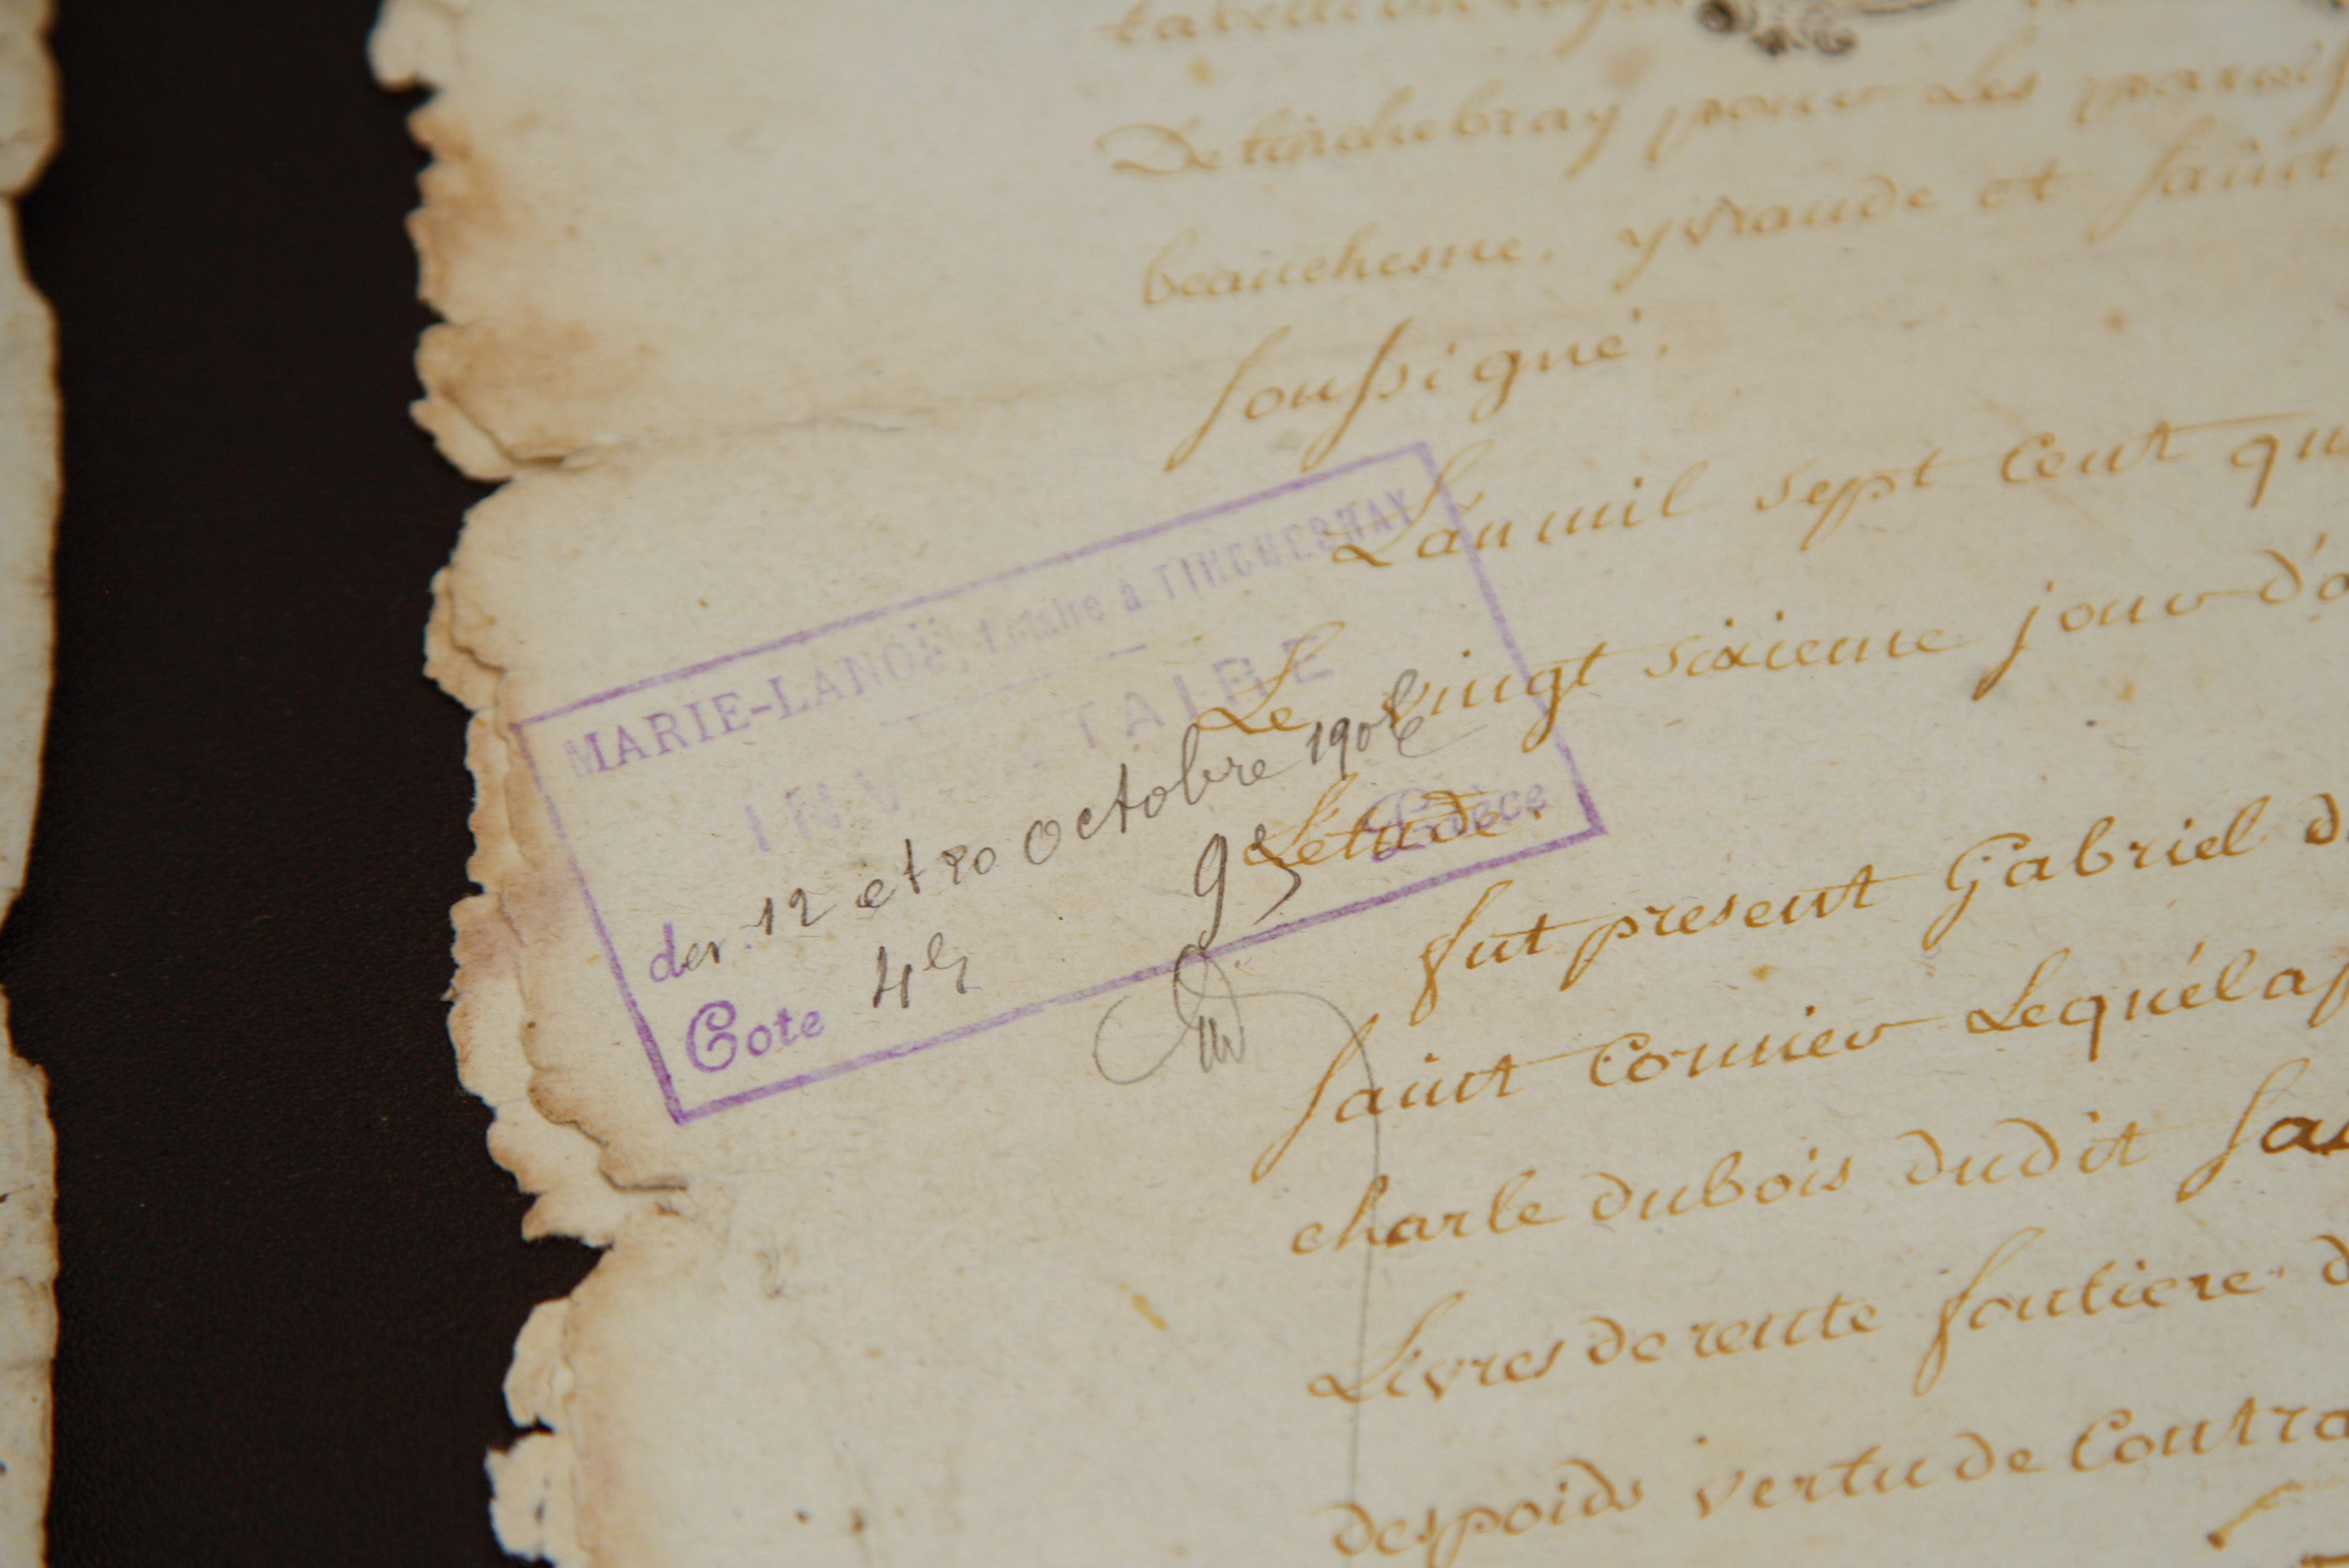 De tinchebray pour les paroiss
beauchesne, yvrande et saint
soussigné.
L'an mil sept cent qu
Le vingt sixieme jour d'a
L'etude.
fut present Gabriel d
saint Cornier Lequél a
charle dubois dudit sa
Livres de rente fontiere d
despoids vertu de Contra
MARIE-LANOË, Notaire à TINCHEBRAY
INVENTAIRE
des 12 et 20 Octobre
Cote 4e 95e Pièce